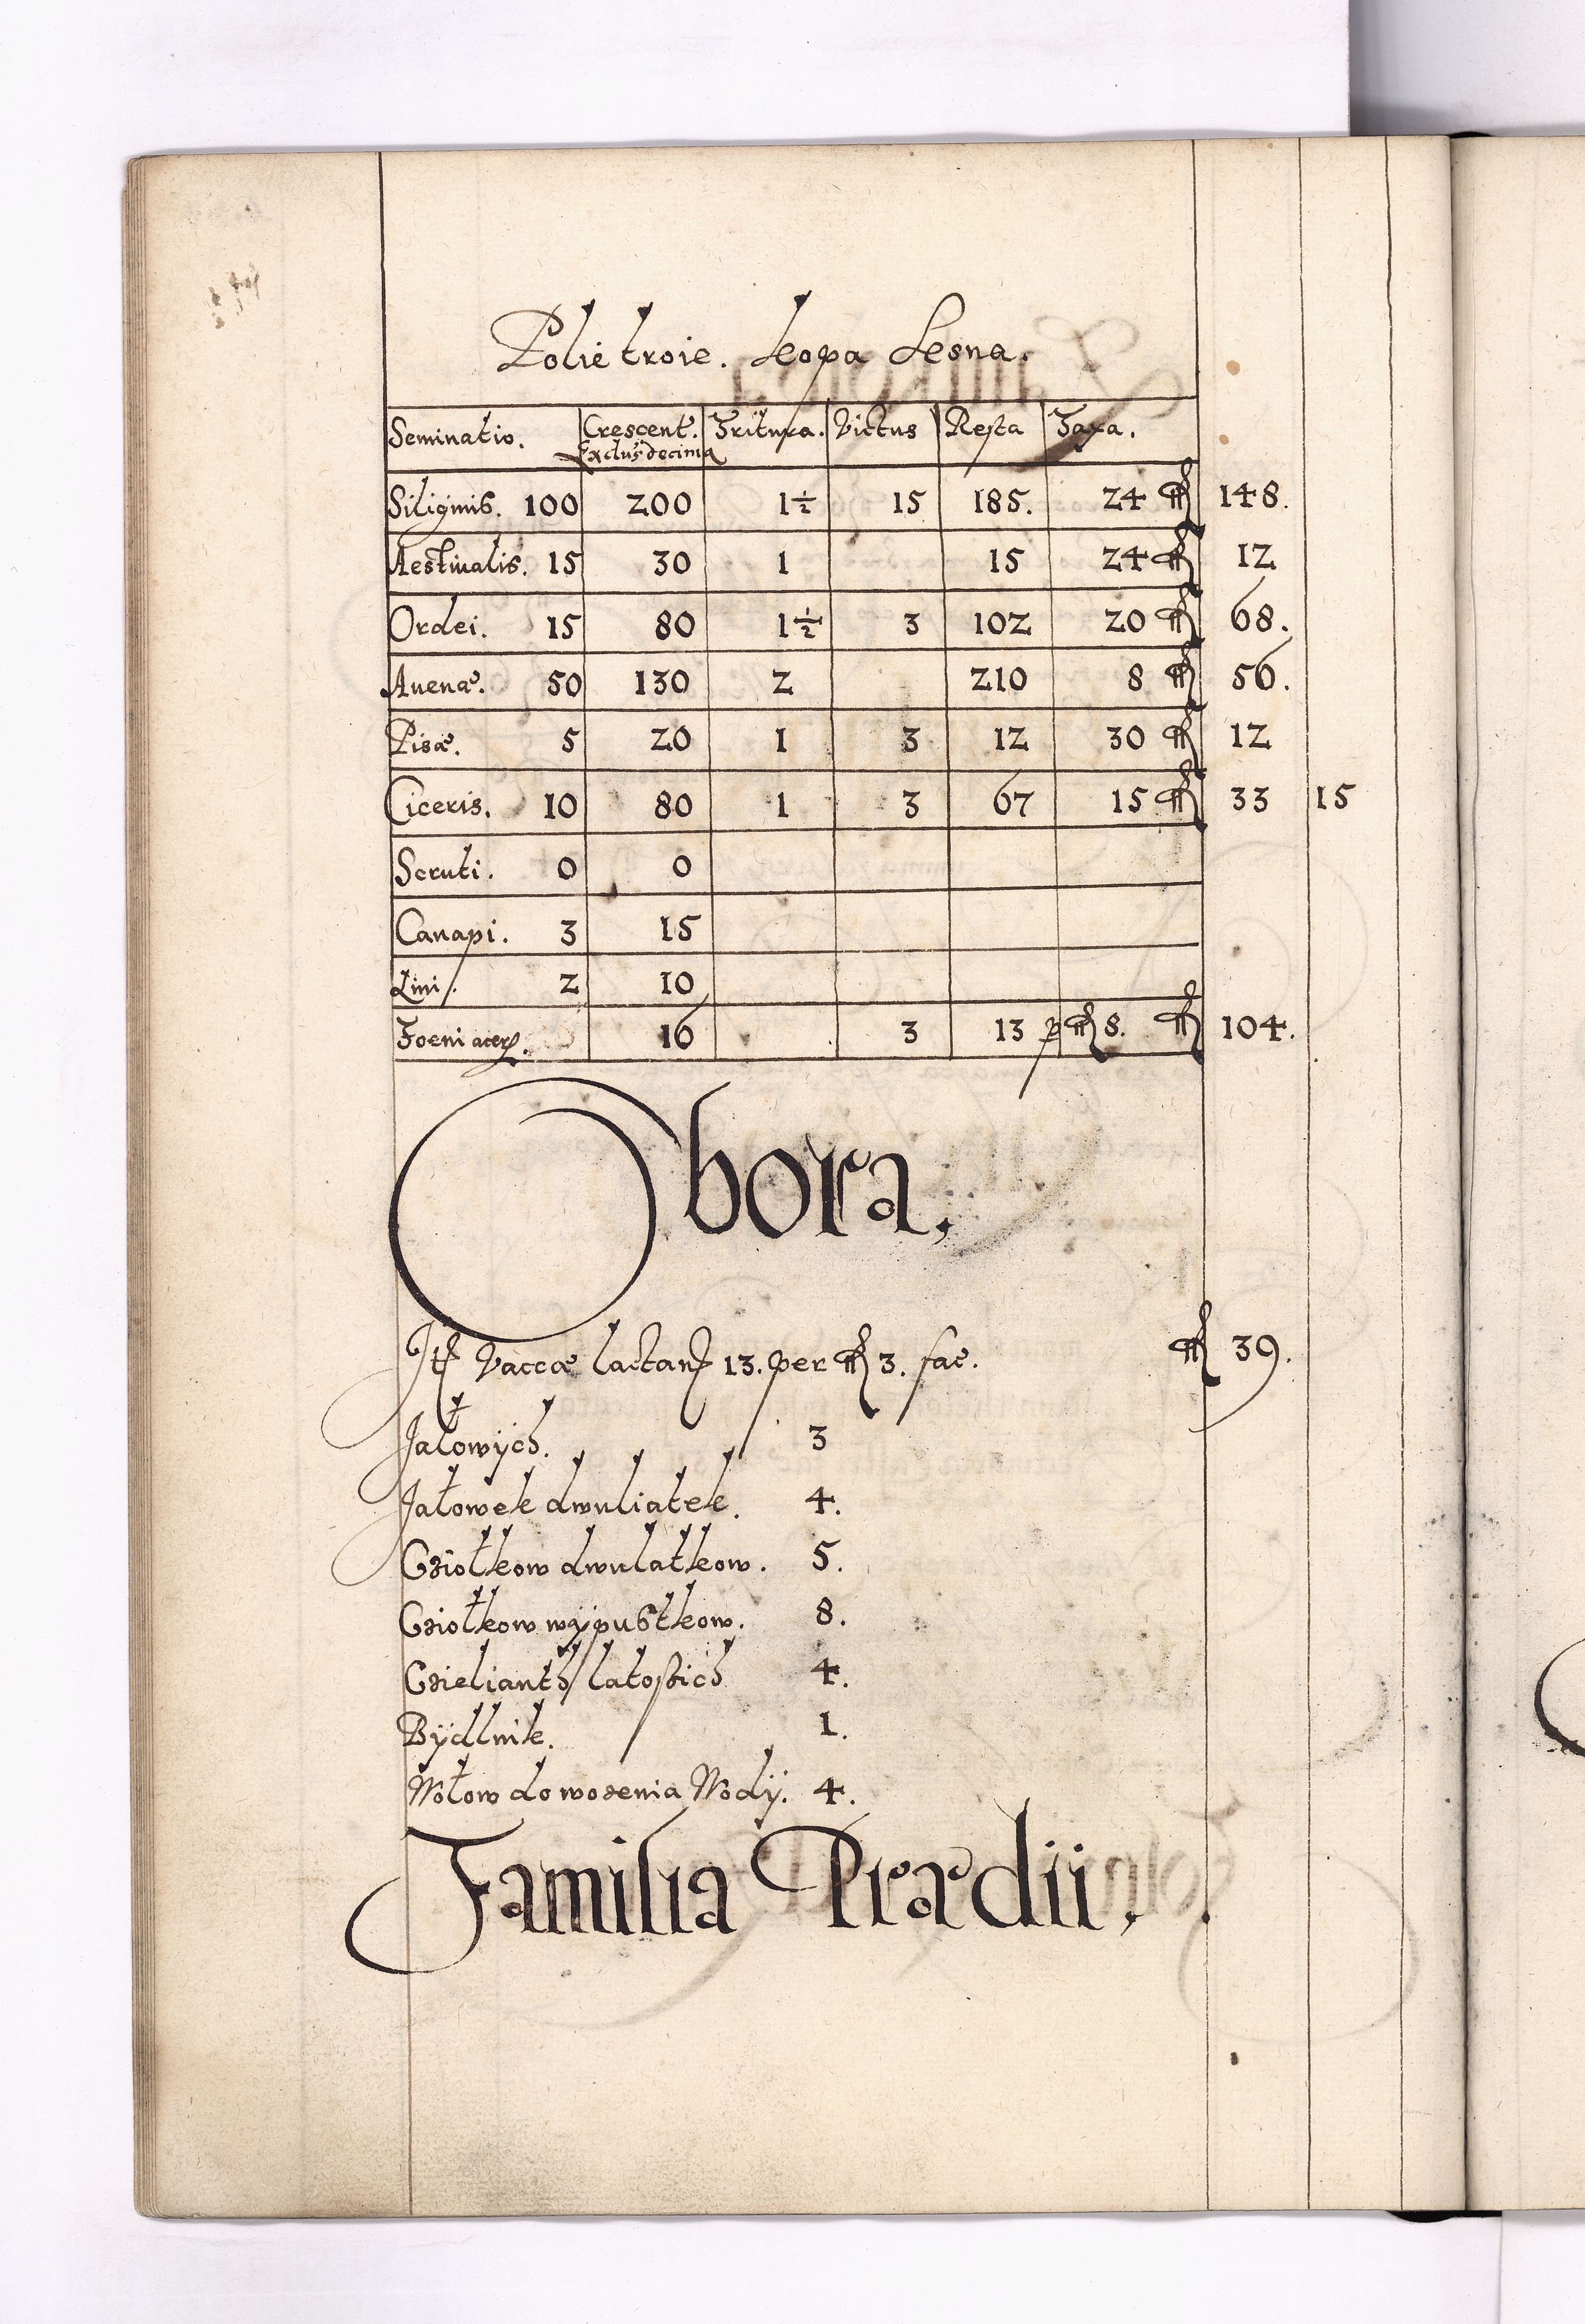 Polie troie. kopa Lesna.
Seminatio. Crescent. Exclus decima Tritura. Victus Resta Taxa.
Siliginis. 100 200 1½ 15 185. 24 fl 148.
Aestiualis. 15 30 1 15 24 fl 12
Ordei. 15 80 1½ 3 102 20 fl 68.
Auenæ. 50 130 2 210 8 fl 56.
Pisæ. 5 20 1 3 12 30 fl 12
Ciceris. 10 80 1 3 67 15 fl 33 15
Scruti. 0 0
Canapi. 3 15
Lini. 2 10
Foeni acer. 16 3 13 p fl 8. fl 104.
Obora,
It Vaccæ lactan 13. per fl 3. fac. fl 39.
Jałowÿch. 3
Jałowek dwuliatek. 4.
Cziołkow dwulatkow. 5.
Cziołkow wÿpustkow. 8.
Czielianth latoßich 4.
Bÿdlnik. 1.
Wołow do wozenia Wodÿ. 4.
Familia Prædii.